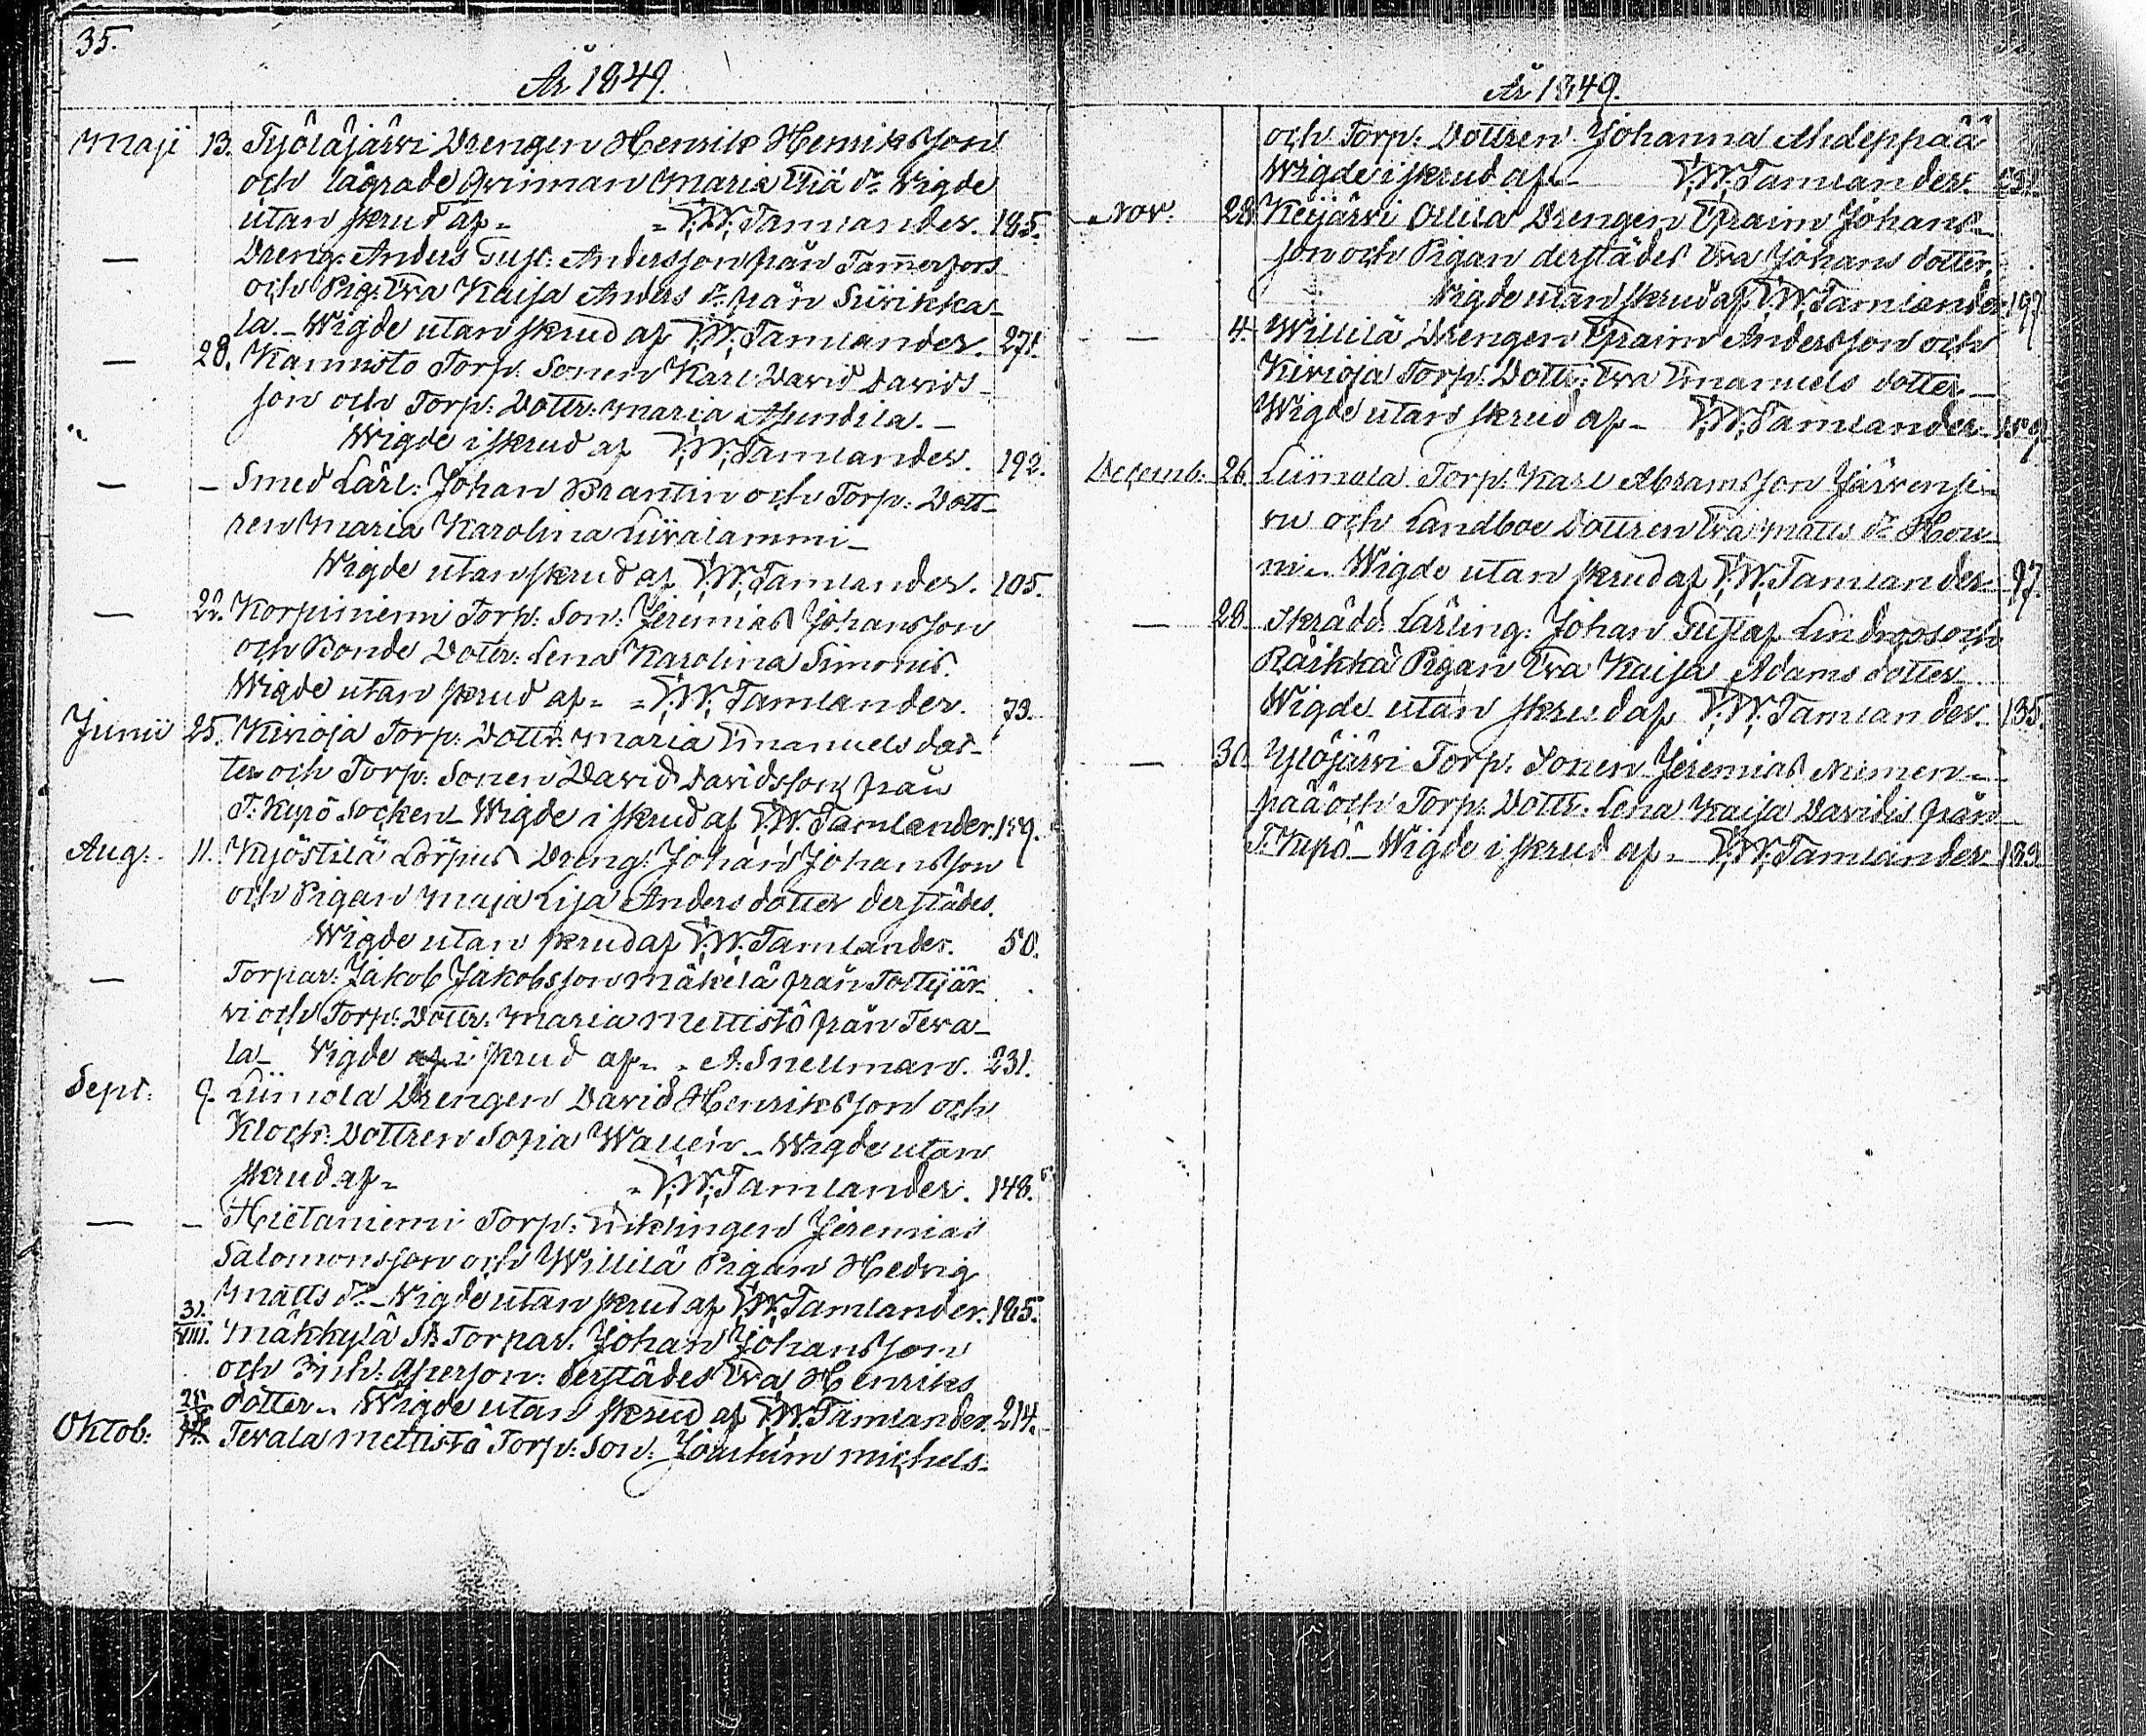 35.
År 1849.
Maji 13. Työläjärvi Drengen Henrik Henriksson
och lägrade Qvinnan Maria Eliä dr. Wigde
utan skrud af - - F:W:Tamlander. 185.
— Dreng: Anders Gust: Andersson från Tammerfors
och Pig: Eva Kaisa Anders dr. från Surikka-
la. - Wigde utan skrud af F:W:Tamlander. 271.
— 28. Kannisto Torp. Sonen Karl David Davids-
son och Torp: Dottr: Maria Mundila. -
Wigde i skrud af F:W:Tamlander. 192.
— - Smed Lärl: Johan Brantin och Torp: Dott-
ren Maria Karolina Liivalammi -
Wigde utan skrud af F:W:Tamlander. 105.
— 22. Korpiniemi Torp: Son: Jeremias Johansson
och Bonde Dottr: Lena Karolina Simonis.
Wigde utan skrud af - - F:W:Tamlander. 73.
Junii 25. Kivioja Torp: Dottr: Maria Emanuels dot-
ter och Torp: Sonen David Davidsson från
T. Kyrö Socken - Wigde i skrud af F:W:Tamlander. 159.
Aug: 11. Kyöstilä Dreng: Johan Johansson
och Pigan Maja Lisa Anders dotter derstädes.
Wigde utan skrud af F:W:Tamlander. 50.
— Torpar: Jakob Jakobsson Mäkelä från Tottijär-
vi och Torp: Dottr: Maria Mettistö från Teva-
la - Vigde i skrud af - - A: Snellman. 231.
Sept: 9. Liimola Drengen David Henriksson och
Klock: Dottren Sofia Wallén - Wigde utan
skrud af - - F:W:Tamlander. 148.
— - Hietaniemi Torp: Enklingen Jeremias
Salomonsson och Willilä Pigan Hedvig
Matts dr. - Vigde utan skrud af F:W:Tamlander. 185.
31. VIII. Mäkkylä St. Torpar: Johan Johansson
och Inh: Qperson: derstädes Eva Henriks
dotter - Wigde utan skrud af F:W:Tamlander. 214.
Oktob: Tevala Mettistö Torp: Son: Joakim Michels-
År 1849.
och Torp: Dottren Johanna Ahdeppää
Wigde i skrud af - F:W:Tamlander. 231.
Nov: 28. Keijärvi Ollila Drengen Efraim Johans-
son och Pigan derstädes Eva Johans dotter,
Vigde utan skrud af F:W:Tamlander. 197
— 4. Willilä Drengen Efraim Andersson och
Kivioja Torp: Dottr: Eva Emanuels dotter -
Wigde utan skrud af - F:W:Tamlander - 159.
Decemb: 26. Liimola Torp: Karl Abramsson Järvensi-
vu och Landboe Dottren Eva Matts dr. Hou-
ni - Wigde utan skrud af F:W:Tamlander - 97.
— 28. Skrädd: Lärling: Johan Gustaf Lindroos och
Räikkä Pigan Eva Kaisa Adams dotter
Wigde utan skrud af F:W:Tamlander. 135.
— 30. Ylöjärvi Torp: Sonen Jeremias Niemen-
pää och Torp: Dottr: Lena Kaisa Davidis från
T. Kyrö - Wigde i skrud af - F:W:Tamlander 183